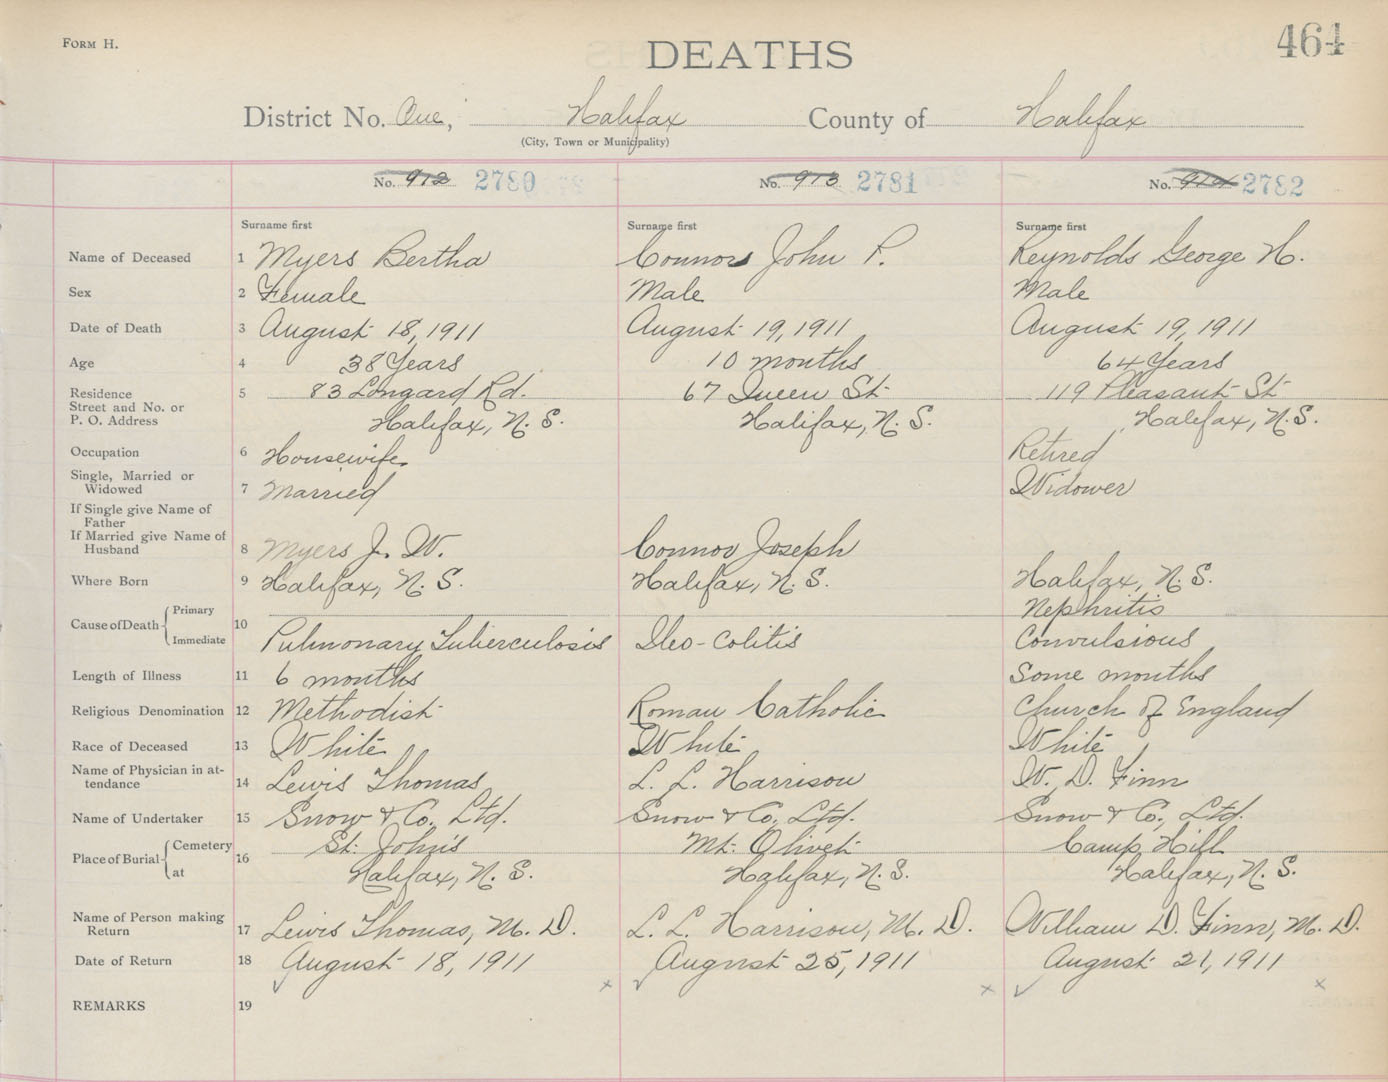 FORM H.
DEATHS
464
District No. One, Halifax County of Halifax
(City, Town or Municipality)
No. 912 2780 No. 913 2781 No. 914 2782
Surname first Surname first Surname first
Name of Deceased 1 Myers Bertha Connors John P. Reynolds George H.
Sex 2 Female Male Male
Date of Death 3 August 18, 1911 August 19, 1911 August 19, 1911
Age 4 38 Years 10 months 64 Years
Residence 5 83 Longard Rd. 67 Queen St 119 Pleasant St
Street and No. or
P. O. Address Halifax, N. S. Halifax, N. S. Halifax, N. S.
Occupation 6 Housewife Retired
Single, Married or
Widowed 7 Married Widower
If Single give Name of
Father
If Married give Name of
Husband 8 Myers J. W. Connor Joseph
Where Born 9 Halifax, N. S. Halifax, N. S. Halifax, N. S.
Cause of Death Primary 10 Nephritis
Immediate Pulmonary Tuberculosis Ileo-Colitis Convulsions
Length of Illness 11 6 months Some months
Religious Denomination 12 Methodist Roman Catholic Church of England
Race of Deceased 13 White White White
Name of Physician in at-
tendance 14 Lewis Thomas L. L. Harrison W. D. Finn
Name of Undertaker 15 Snow & Co. Ltd. Snow & Co., Ltd. Snow & Co., Ltd.
Place of Burial Cemetery 16 St. John's Mt. Olivet Camp Hill
at Halifax, N. S. Halifax, N. S. Halifax, N. S.
Name of Person making
Return 17 Lewis Thomas, M. D. L. L. Harrison, M. D. William D. Finn, M. D.
Date of Return 18 August 18, 1911 August 25, 1911 August 21, 1911
REMARKS 19